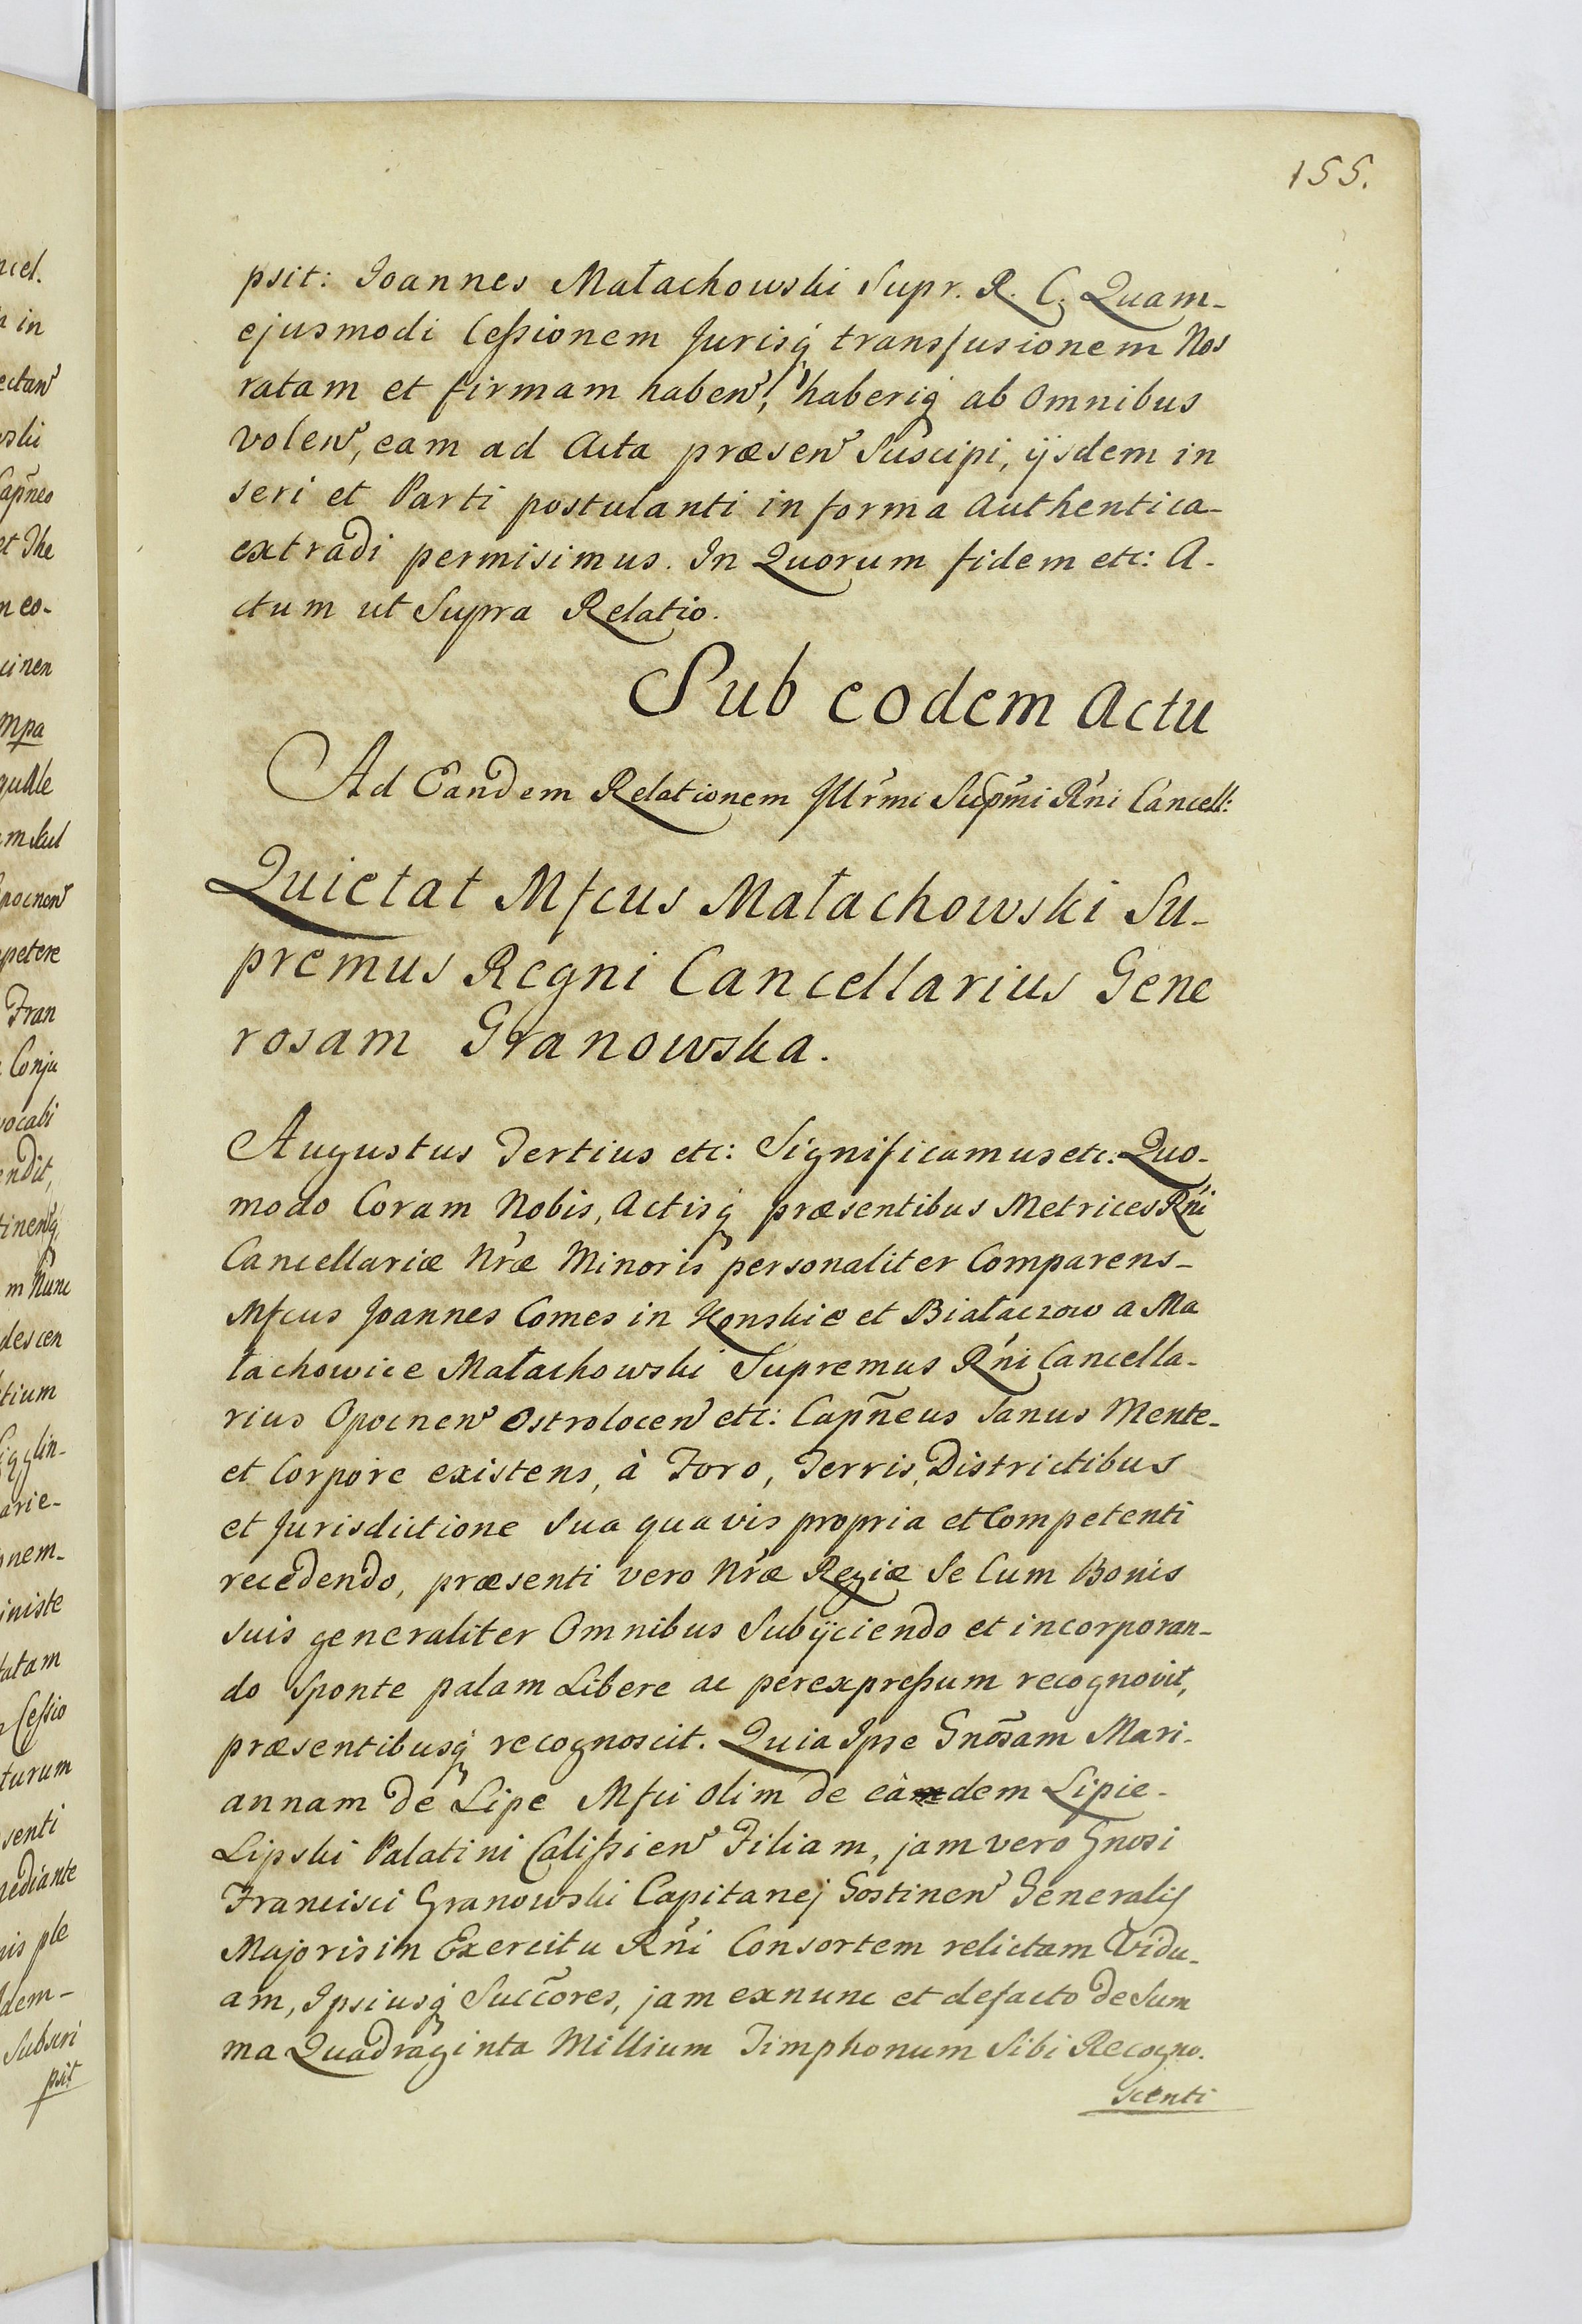 155.
psit: Joannes Małachowski Supr. R. C. Quam-
ejusmodi Cessionem Jurisq́ transfusionem Nos
ratam et firmam haben̛, haberiq́ ab Omnibus
volen̛, eam ad Acta præsen̛ Suscipi, ijsdem in
seri et Parti postulanti in forma Authentica-
extradi permisimus. In Quorum fidem etc: A-
ctum ut Supra Relatio.
Sub eodem Actu
Ad Eandem Relationem Illr̃mi Sup̃mi Rñi Cancell:
Quietat Mfcus Małachowski Su-
premus Regni Cancellarius Gene
rosam Granowska.
Augustus Tertius etc: Significamus etc: Quo-
modo Coram Nobis, Actisq́ præsentibus Metrices Rñi
Cancellariæ Nr̃æ Minoris personaliter Comparens-
Mfcus Joannes Comes in Konskie et Białaczow a Ma
łachowice Małachowski Supremus Rñi Cancella-
rius Opocnen̛ Ostrolocen̛ etc: Cap̃neus Sanus Mente-
et Corpore existens, à Foro, Terris, Districtibus
et Jurisdictione Sua quavis propria et Competenti
recedendo, præsenti vero Nr̃æ Regiæ Se Cum Bonis
suis generaliter Omnibus Subijciendo et incorporan-
do Sponte palam Libere ac perexpressum recognovit,
præsentibusq́ recognoscit. Quia Ipse Gnõsam Mari-
annam de Lipe Mfci olim de eàdem Lipie-
Lipski Palatini Calissien̛ Filiam, jam vero Gnosi
Francisci Granowski Capitanej Gostinen̛ Generalis
Majoris in Exercitu Rñi Consortem relictam Vidu-
am, Ipsiusq́ Succ̃ores, jam exnunc et defacto de Sum
ma Quadraginta Millium Timphonum Sibi Recogno-
scenti